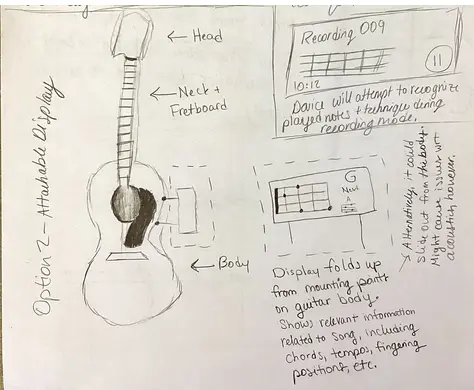 Option 2 - Attachable Display
← Head
← Neck +
Fretboard
← Body
Recording 009
10:12
Device will attempt to recognize
played notes + technique during
recording mode.
G
Next
A
Display folds up
from mounting points
on guitar body.
Shows relevant information
related to song, including
chords, tempos, fingering
positions, etc.
→ Alternatively, it could
slide out from the body.
Might cause issues wrt
acoustics however.